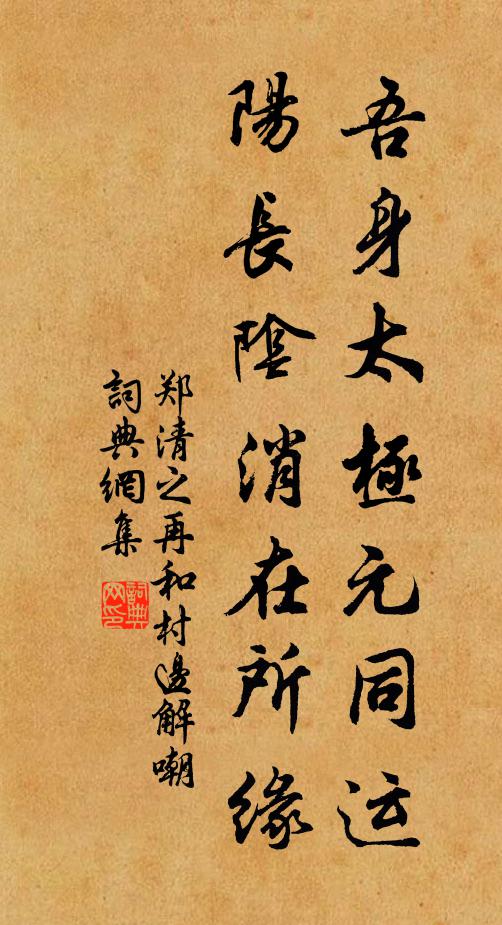 吾身太極元同运
陽長陰消在所緣
郑清之再和村邊解嘲
詞典網集
詞典网印